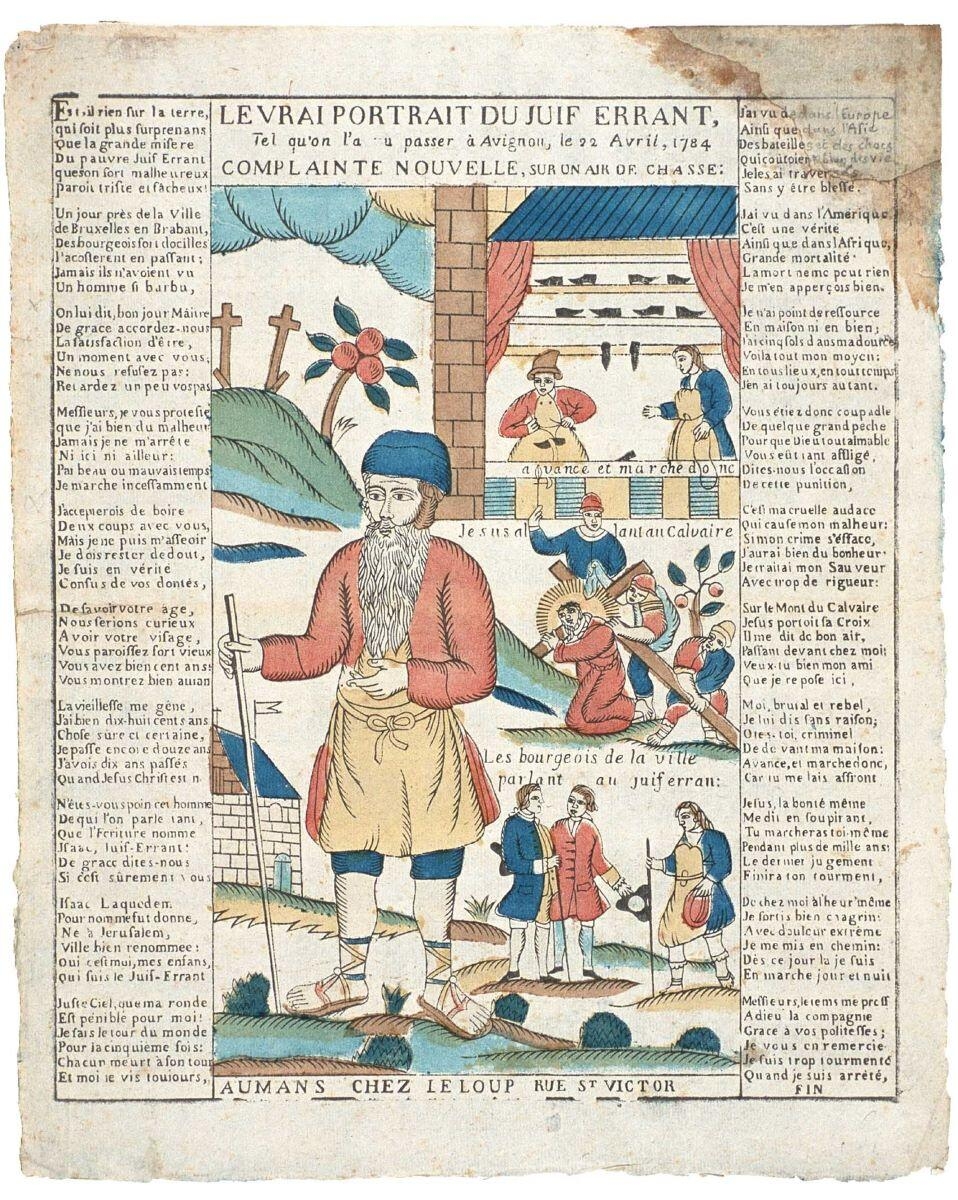 LE VRAI PORTRAIT DU JUIF ERRANT,
Tel qu'on l'a u passer à Avignon, le 22 Avril, 1784
COMPLAINTE NOUVELLE, SUR UN AIR DE CHASSE:
Est,il rien sur la terre,
qui soit plus surprenans
Que la grande misere
Du pauvre Juif Errant
que son sort malheureux
Paroit triste et fâcheux!
Un jour près de la Ville
de Bruxelles en Brabant,
Des bourgeois fort docilles
l'acosterent en passant;
Jamais ils n'avoient vu
Un homme si barbu,
On lui dit, bon jour Maître
De grace accordez-nous
La satisfaction d'être,
Un moment avec vous;
Ne nous refusez pas:
Retardez un peu vos pas
Messieurs, je vous proteste
que j'ai bien du malheur
Jamais je ne m'arrête
Ni ici ni ailleur:
Par beau ou mauvais temps
Je marche incessamment
J'accepterois de boire
Deux coups avec vous,
Mais je ne puis m'asseoir
Je dois rester debout,
Je suis en vérité
Confus de vos bontés,
De savoir votre age,
Nous serions curieux
A voir votre visage,
Vous paroissez fort vieux
Vous avez bien cent ans:
Vous montrez bien autan
La vieillesse me gêne,
J'ai bien dix-huit cents ans
Chose sûre et certaine,
Je passe encore douze ans
J'avois dix ans passés
Quand Jesus Christ est n
N'êtes-vous poin cet homme
De qui l'on parle tant,
Que l'Ecriture nomme
Isaac, Juif-Errant:
De grace dites-nous
Si c'est sûrement vous
Isaac Laquedem
Pour nom me fut donne,
Ne à Jerusalem,
Ville bien renommee:
Oui c'est moi, mes enfans,
Qui suis le Juif-Errant
Juste Ciel, que ma ronde
Est pénible pour moi!
Je fais le tour du monde
Pour la cinquième fois:
Chacun meurt à son tour
Et moi je vis toujours,
avance et marche donc
Jesus al lant au Calvaire
Les bourgeois de la ville
parlant au juif erran:
J'ai vu dedans l'Europe
Ainsi que dans l'Asie
Des batailles et des chocs
Qui coutoient bien des vie
Je les ai traver
Sans y être blessé.
J'ai vu dans l'Amérique
C'est une vérité
Ainsi que dans l'Afrique,
Grande mortalité:
La mort ne me peut rien
Je m'en apperçois bien.
Je n'ai point de ressource
En maison ni en bien;
J'ai cinq sols dans ma bourse
Voila tout mon moyen:
En tous lieux, en tout temps
J'en ai toujours autant.
Vous étiez donc coupable
De quelque grand péche
Pour que Dieu tout aimable
Vous eût tant affligé,
Dites-nous l'occasion
De cette punition,
C'est ma cruelle audace
Qui cause mon malheur:
Si mon crime s'efface,
J'aurai bien du bonheur
Je traitai mon Sauveur
Avec trop de rigueur:
Sur le Mont du Calvaire
Jesus portoit sa Croix
Il me dit de bon air,
Passant devant chez moi
Veux-tu bien mon ami
Que je repose ici,
Moi, brutal et rebel,
Je lui dis sans raison;
Otes-toi, criminel
De devant ma maison:
Avance, et marche donc,
Car tu me fais affront
Jesus, la bonté même
Me dit en soupirant,
Tu marcheras toi-même
Pendant plus de mille ans:
Le dernier jugement
Finira ton tourment,
De chez moi à l'heur'même
Je sortis bien chagrin:
Avec douleur extrême
Je me mis en chemin:
Dès ce jour la je suis
En marche jour et nuit
Messieurs, le tems me press
Adieu la compagnie
Grace à vos politesses;
Je vous en remercie
Je suis trop tourmenté
Quand je suis arrêté,
FIN
AU MANS CHEZ LELOUP RUE ST VICTOR